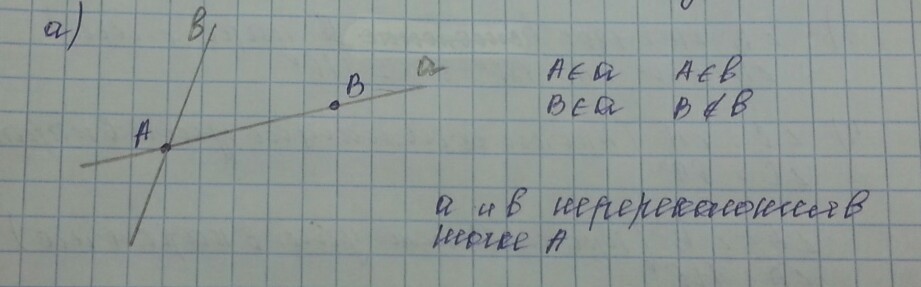 а)
в
a
B
A
A∈a A∈в
B∈a B∉в
a и в перерекаются в
точке A